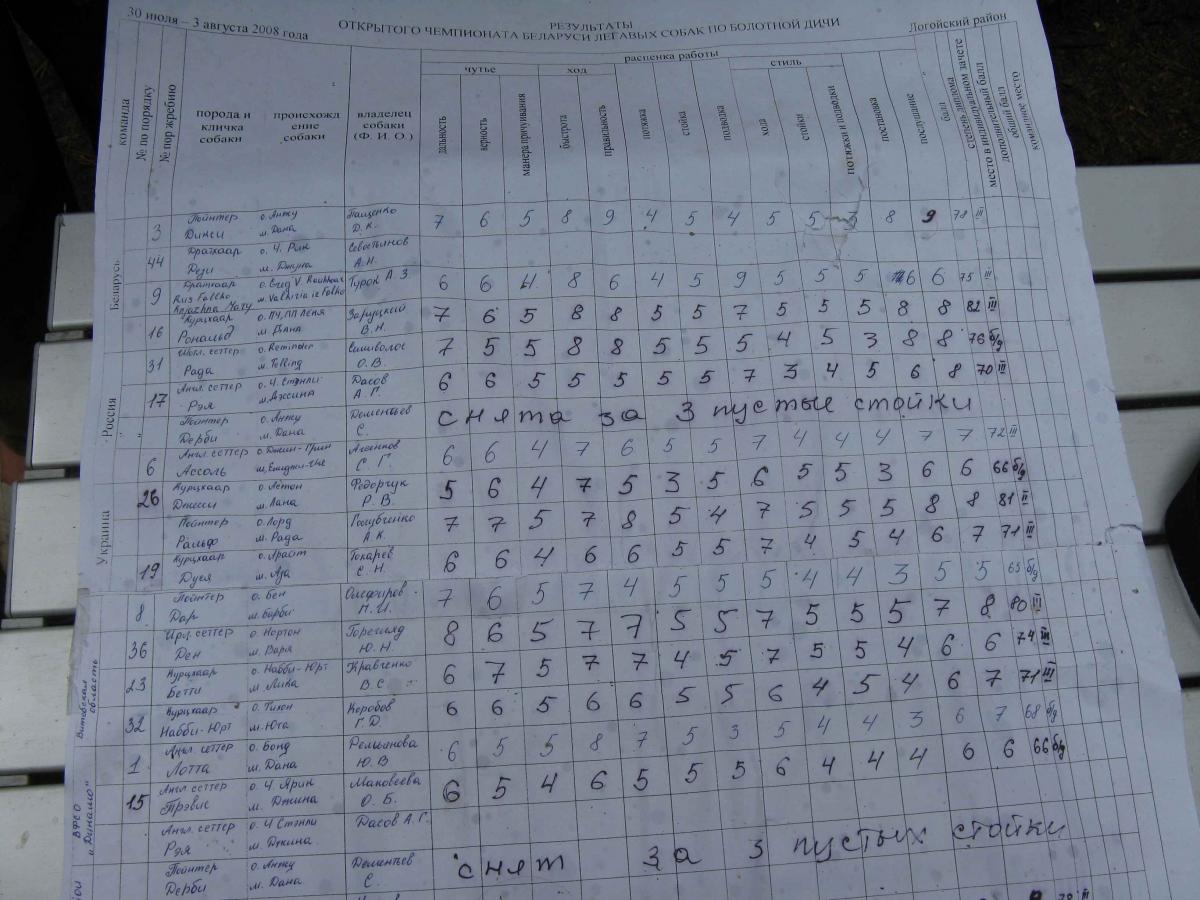 30 июля – 3 августа 2008 года
РЕЗУЛЬТАТЫ
ОТКРЫТОГО ЧЕМПИОНАТА БЕЛАРУСИ ЛЕГАВЫХ СОБАК ПО БОЛОТНОЙ ДИЧИ
Логойский район
расценка работы
чутье ход стиль
команда
№ по порядку
№ пор жребию
порода и кличка собаки
происхожд ение собаки
владелец собаки (Ф. И. О.)
дальность
верность
манера причуивания
быстрота
правильность
потяжка
стойка
подводка
хода
стойки
потяжки и подводки
постановка
послушание
балл
степень диплома
место в индивидуальном зачете
дополнительный балл
общий балл
командное место
Беларусь
3 Пойнтер о. Анжу Пащенко 7 6 5 8 9 4 5 4 5 5 5 8 9 78 III
Дикси м. Дана Д. К.
44 Дратхаар о. Ч. Рик Севостьянов
Рези м. Джуна А. Н.
9 Дратхаар Турок А З 6 6 4 8 6 4 5 9 5 5 5 6 6 75 III
16 Курцхаар Заруцкий 7 6 5 8 8 5 5 7 5 5 5 8 8 82 III
Рональд м Диана В. Н.
31 Шотл. сеттер о. Reminder 7 5 5 8 8 5 5 5 4 5 3 8 8 76 б/д
Рада м. Telling О. В.
Россия
17 Англ. сеттер о. Ч. Стэнли Дасов 6 6 5 5 5 5 5 7 3 4 5 6 8 70 III
Рэя м. Джина А Г.
Пойнтер о. Анжу Дементьев снята за 3 пустые стойки
Дерби м. Дана С.
6 Англ. сеттер о. Джин-Грин 6 6 4 7 6 5 5 7 4 4 4 7 7 72 III
Ассоль С Г.
Украина
26 Курцхаар Федорчук 5 6 4 7 5 3 5 6 5 5 3 6 6 66 б/д
Джесси м. Лана Р. В.
Пойнтер о. Лорд Голубченко 7 7 5 7 8 5 4 7 5 5 5 8 8 81 II
Ральф м. Рада А К.
19 Курцхаар Токарев 6 6 4 6 6 5 5 7 4 5 4 6 7 71 III
м. Аза С. Н.
8 Пойнтер о. Бен 7 6 5 7 4 5 5 5 4 4 3 5 5 65 б/д
Дар м. Барби
Витебская область
36 Ирл. сеттер о. Нортон 8 6 5 7 7 5 5 7 5 5 5 7 8 80 III
Ден м. Варя Ю. Н.
23 Курцхаар о. Набби-Юрт Кравченко 6 7 5 7 7 4 5 7 5 5 4 6 6 74 III
Бетти м. Лика В С
32 Курцхаар о. Тихон Коробов 6 6 5 6 6 5 5 6 4 5 4 6 7 71 III
Набби-Юрт м. Юта Г. Д.
ВФСО "Динамо"
1 Англ. сеттер о. Бонд 6 5 5 8 7 5 3 5 4 4 3 6 7 68 б/д
Лотта м. Дана Ю. В
15 Англ сеттер о. Ч. Ярик Маковеева 6 5 4 6 5 5 5 6 4 4 4 6 6 66 б/д
Трэвис м. Джина О. Б.
Англ. сеттер о. Ч Стэнли Дасов А. Г.
Рэя м. Джина.
Пойнтер о. Анжу Дементьев снят за 3 пустых стойки
Дерби м. Дана С.